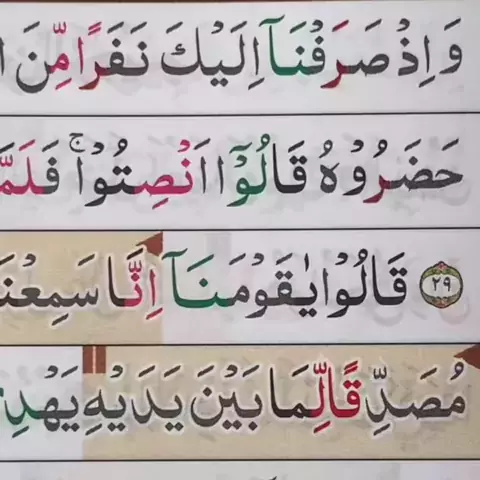 وَاِذْ صَرَفْنَآ اِلَيْكَ نَفَرًا مِّنَ
حَضَرُوْهُ قَالُوْٓا اَنْصِتُوْاۚ فَلَمَّ
٢٩ قَالُوْا يٰقَوْمَنَآ اِنَّا سَمِعْنَا
مُصَدِّقًا لِّمَا بَيْنَ يَدَيْهِ يَهْدِ